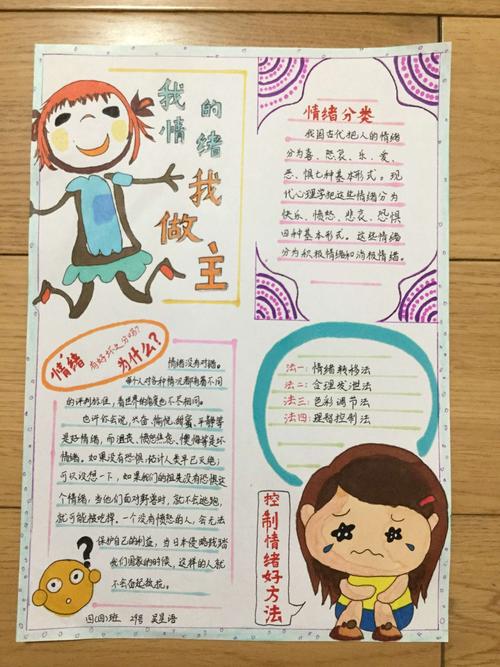 我的
情绪
我
做
主
情绪分类
我国古代把人的情绪
分为喜、怒、哀、乐、爱、
恶、惧七种基本形式。现
代心理学把这些情绪分为
快乐、愤怒、悲哀、恐惧
四种基本形式。这些情绪
分为积极情绪和消极情绪。
情绪有好坏之分吗?
为什么?
情绪没有对错。
每个人对各种情况都有着不同
的评判标准,看世界的角度也不尽相同。
也许你会说,兴奋、愉悦、甜蜜、平静等
是好情绪,而沮丧、愤怒焦虑、懊悔等是坏
情绪。如果没有恐惧,估计人类早已灭绝;
可以设想一下,如果我们的祖先没有恐惧这
个情绪,当他们面对野兽时,就不会逃跑,
就可能被吃掉。一个没有愤怒的人,会无法
保护自己的利益,当日本侵略践踏
我们国家的时候,这样的人就
不会奋起救抗。
?
四(四)班 29号 吴昱语
法一:情绪转移法
法二:合理发泄法
法三:色彩调节法
法四:理智控制法
控制情绪好方法